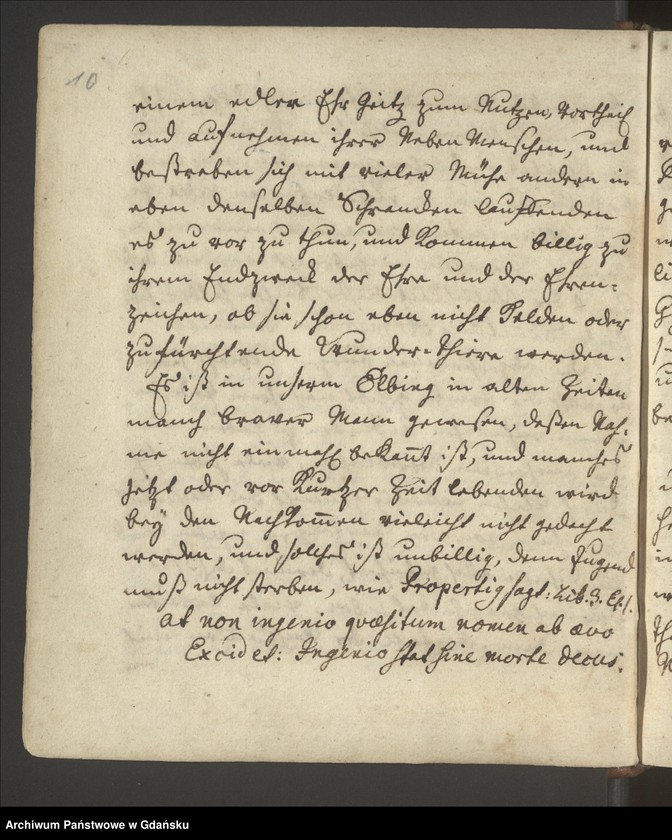 10
einem edler Ehr Geitz zum Nutzen, Vortheil
und aufnehmen ihrer Neben Menschen, und
bestreben sich mit vieler Mühe andern in
eben denselben Schrancken lauffenden
es zu vor zu thun, und kommen billig zu
ihrem Endzweck der Ehre und der Ehren-
zeichen, ob sie schon eben nicht Helden oder
zu fürchtende Wunder-Thiere werden.
Es ist in unserm Elbing in alten Zeiten
manch braver Mann gewesen, deßen Nah-
me nicht einmahl bekannt ist, und manches
jetzt oder vor kurtzer Zeit lebenden wird
bey den Nachkommen vieleicht nicht gedacht
werden, und solches ist unbillig, denn Tugend
muß nicht sterben, wie Propertig sagt: Lib. 3. El. 1.
at non ingenio quæsitum nomen ab ævo
Excidet: Ingenio stat sine morte decus.
Archiwum Państwowe w Gdańsku